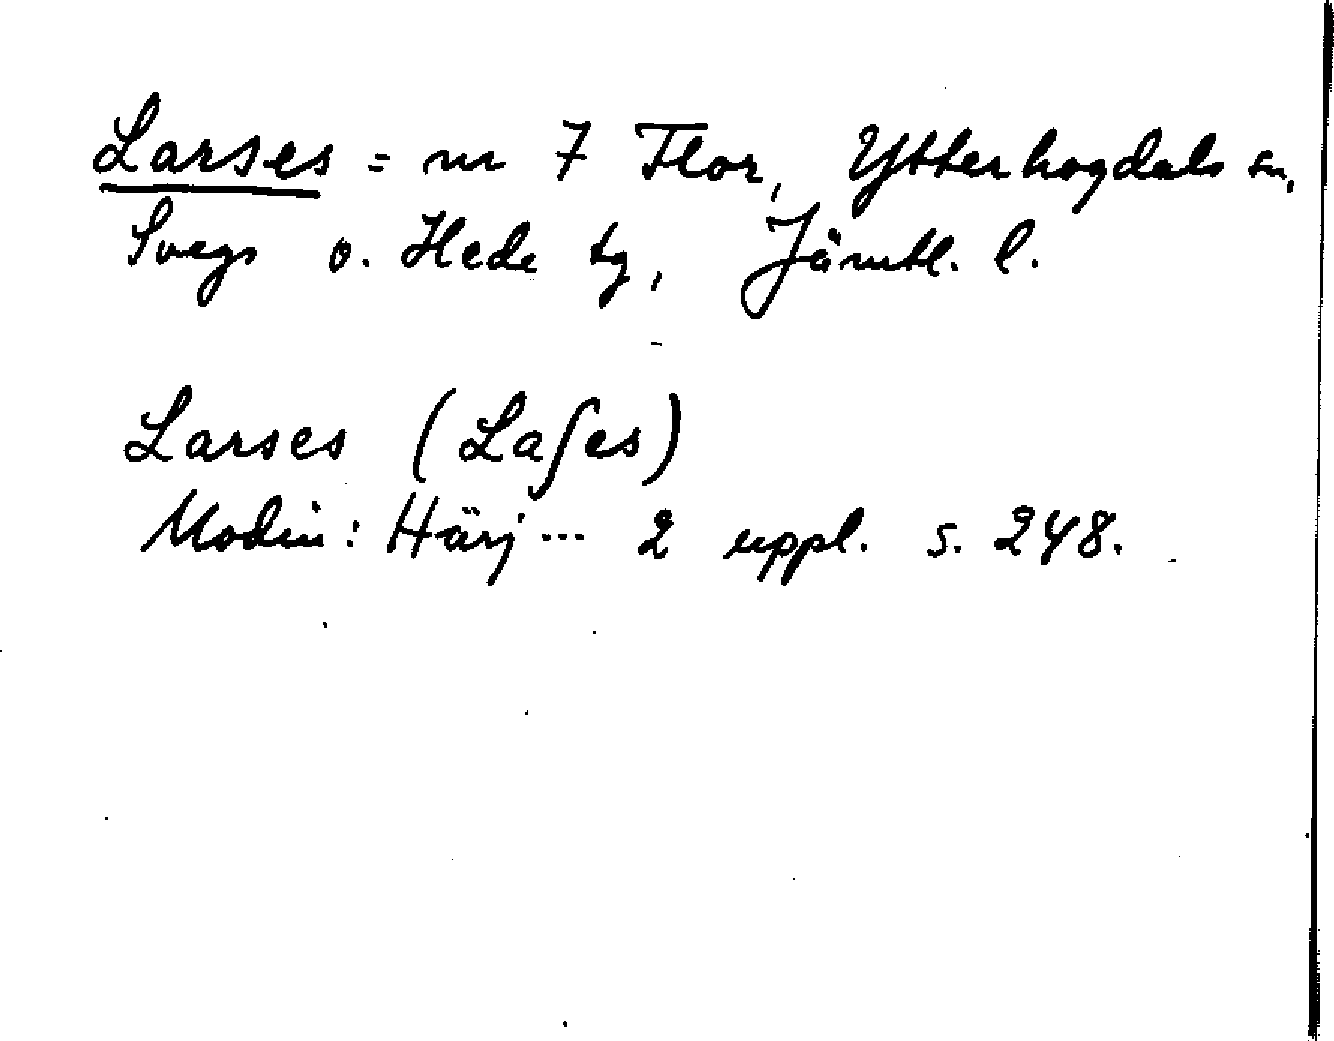 Larses = nr 7 Flor, Ytterhogdals sn,
Svegs o. Hede tg, Jämtl. l.
Larses (Laſes)
Modin: Härj... 2 uppl. s. 248.